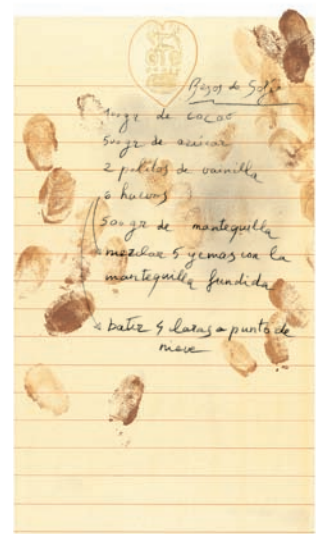 Besos de Sofía
100 gr de cacao
500 gr de azúcar
2 palitos de vainilla
6 huevos
500 gr de mantequilla
mezclar 5 yemas con la
mantequilla fundida
batir 4 claras a punto de
nieve